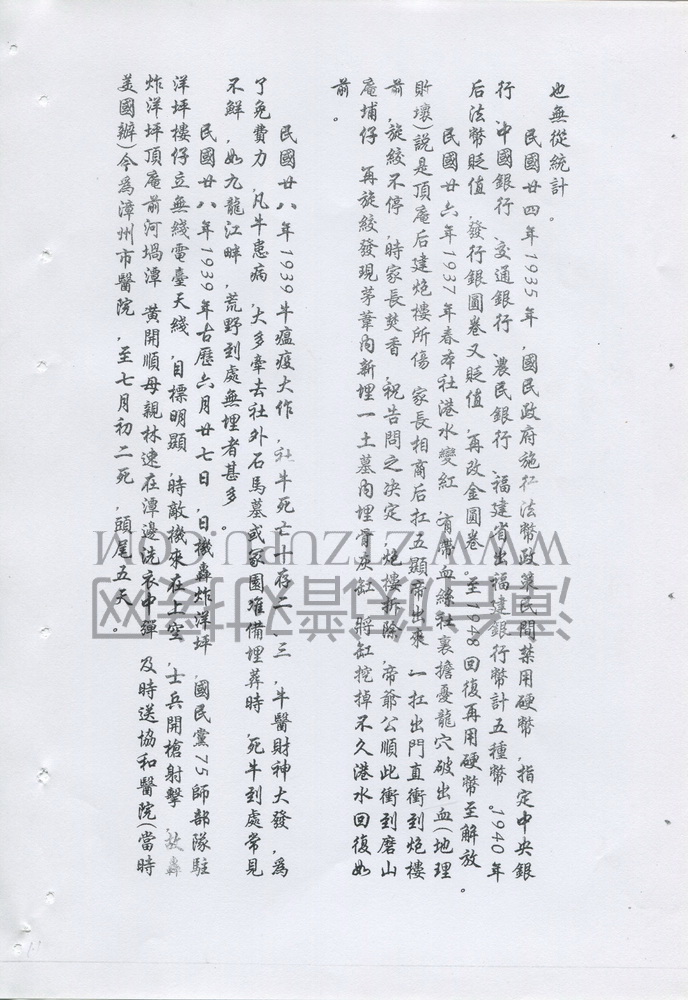 也無從統計。
民國廿四年1935年,國民政府施行法幣政策民間禁用硬幣,指定中央銀
行,中國銀行,交通銀行,農民銀行,福建省出福建銀行幣計五種幣。1940年
后法幣貶值,發行銀圓卷又貶值,再改金圓卷。至1948回復再用硬幣至解放。
民國廿六年1937年春本社港水變紅,有帶血絲社裏擔憂龍穴破出血(地理
敗壞)說是頂庵后建炮樓所傷,家長相商后扛五顯帝出來,一扛出門直衝到炮樓
前,旋絞不停,時家長焚香,祝告問之決定,炮樓拆除,帝爺公順此衝到磨山
庵埔仔,再旋絞發現茅葦內新埋一土墓內埋骨灰缸,將缸挖掉不久港水回復如
前。
民國廿八年1939牛瘟疫大作,社牛死亡十存二、三,牛醫財神大發,為
了免費力,凡牛患病,大多牽去社外石馬墓或冢園准備埋葬時,死牛到處常見
不鮮,如九龍江畔,荒野到處無埋者甚多。
民國廿八年1939年古曆六月廿七日,日機轟炸洋坪,國民黨75師部隊駐
洋坪樓仔立無綫電臺天綫,目標明顯,時敵機來在上空,士兵開槍射擊,故轟
炸洋坪頂庵前河堝潭,黃開順母親林速在潭邊洗衣中彈,及時送協和醫院(當時
美國辦)今為漳州市醫院,至七月初二死,頭尾五天。
WWW.ZIZUPU.COM